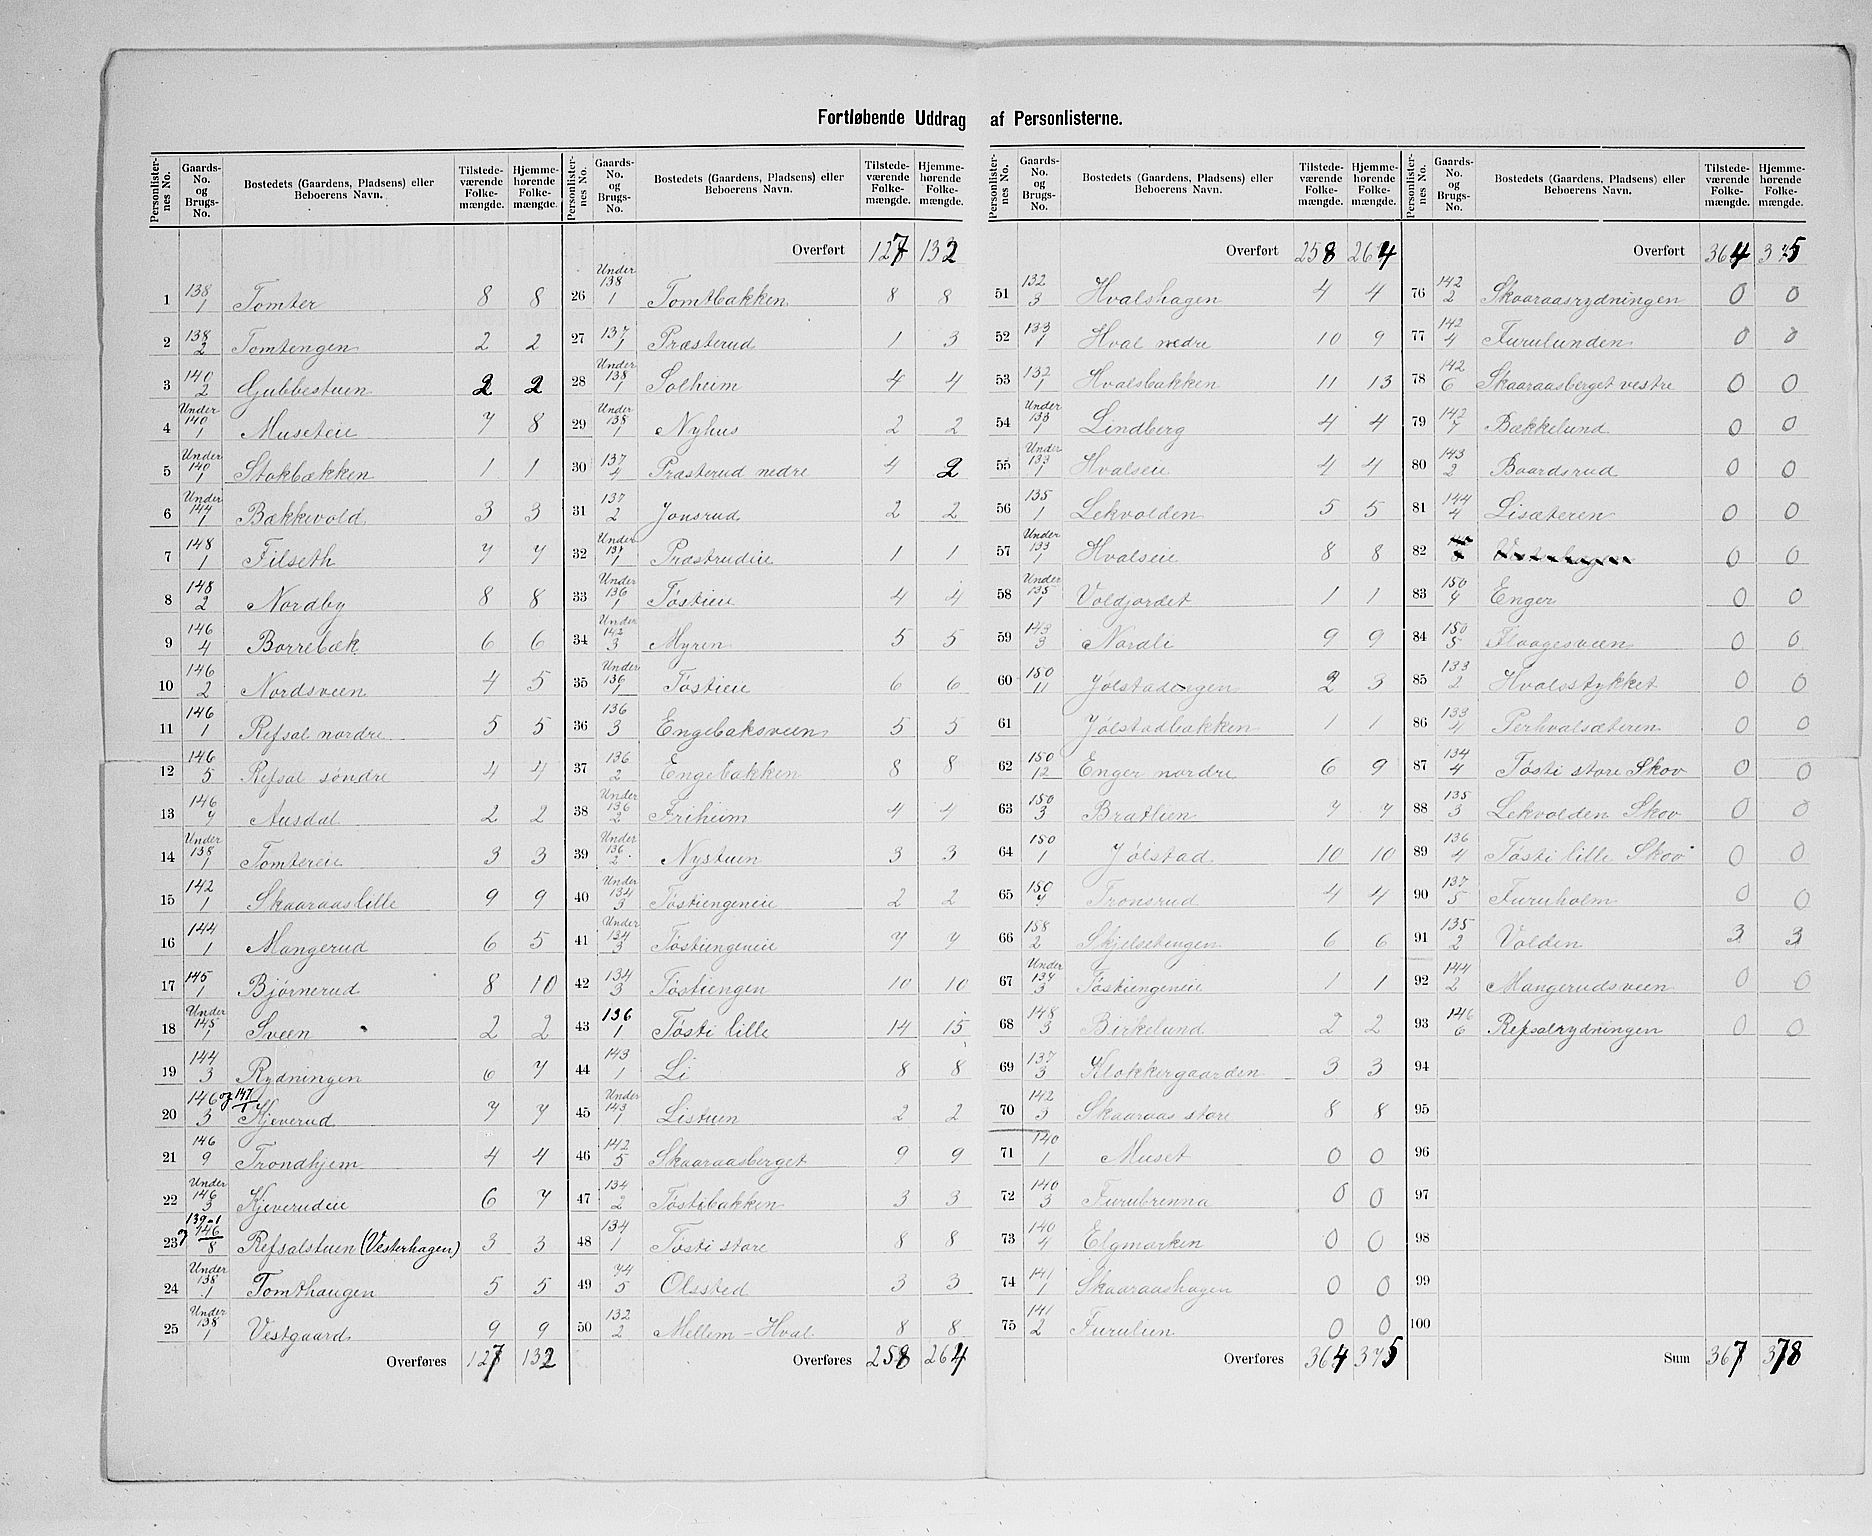 Fortløbende Uddrag af Personlisterne.
Personlister-nes No. | Gaards-No. og Brugs-No. | Bostedets (Gaardens, Pladsens) eller Beboerens Navn. | Tilstede-værende Folke-mængde. | Hjemme-hørende Folke-mængde.
1 138/1 Tomter 8 8
2 138/2 Tomtengen 2 2
3 140/2 Gubbestuen 2 2
4 Under 140/1 Museteie 7 8
5 Under 140/1 Stokbækken 1 1
6 Under 144/1 Bækkevold 3 3
7 148/1 Filseth 7 7
8 148/2 Nordby 8 8
9 146/4 Borrebæk 6 6
10 146/2 Nordsveen 4 5
11 146/1 Refsal nordre 5 5
12 146/5 Refsal søndre 4 4
13 146/7 Ausdal 2 2
14 Under 138/1 Tomtereie 3 3
15 142/1 Skaaraas lille 9 9
16 144/1 Mangerud 6 5
17 145/1 Bjørnerud 8 10
18 Under 145/1 Sveen 2 2
19 144/3 Rydningen 6 7
20 146/3 og 147/1 Kjeverud 7 7
21 146/9 Trondhjem 4 4
22 Under 146/3 Kjeverudeie 6 7
23 139-1 og 146/8 Refsalstuen (Vesterhagen) 3 3
24 Under 138/1 Tomthaugen 5 5
25 Under 138/1 Vestgaard 9 9
Overføres 127 132
Personlister-nes No. | Gaards-No. og Brugs-No. | Bostedets (Gaardens, Pladsens) eller Beboerens Navn. | Tilstede-værende Folke-mængde. | Hjemme-hørende Folke-mængde.
Overført 127 132
26 Under 138/1 Tomtbakken 8 8
27 137/1 Præsterud 1 3
28 Under 138/1 Solheim 4 4
29 Under 138/1 Nyhus 2 2
30 137/4 Præsterud nedre 4 2
31 137/2 Jonsrud 2 2
32 Under 137/1 Præstrudeie 1 1
33 Under 136/1 Tøstieie 4 4
34 Under 142/3 Myren 5 5
35 Under 136/1 Tøstieie 6 6
36 136/3 Engebaksveen 5 5
37 136/2 Engebakken 8 8
38 Under 136/2 Friheim 4 4
39 Under 136/2 Nystuen 3 3
40 Under 134/3 Tøstiengeneie 2 2
41 Under 134/3 Tøstiengeneie 7 7
42 134/3 Tøstiengen 10 10
43 136/1 Tøsti lille 14 15
44 143/1 Li 8 8
45 Under 143/1 Listuen 2 2
46 142/5 Skaaraasberget 9 9
47 134/2 Tøstibakken 3 3
48 134/1 Tøsti store 8 8
49 74/5 Olssted 3 3
50 132/2 Mellem-Hval 8 8
Overføres 258 264
Personlister-nes No. | Gaards-No. og Brugs-No. | Bostedets (Gaardens, Pladsens) eller Beboerens Navn. | Tilstede-værende Folke-mængde. | Hjemme-hørende Folke-mængde.
Overført 258 264
51 132/3 Hvalshagen 4 4
52 133/1 Hval nedre 10 9
53 132/1 Hvalsbakken 11 13
54 Under 133/1 Lindberg 4 4
55 Under 133/1 Hvalseie 4 4
56 135/1 Lekvolden 5 5
57 Under 133/1 Hvalseie 8 8
58 Under 135/1 Voldjordet 1 1
59 143/3 Nordli 9 9
60 150/11 Jølstadengen 2 3
61 Jølstadbakken 1 1
62 150/12 Enger nordre 6 9
63 150/3 Bratlien 7 7
64 150/1 Jølstad 10 10
65 150/9 Tronsrud 4 4
66 158/2 Skjelsetengen 6 6
67 Under 134/3 Tøstiengeneie 1 1
68 148/3 Birkelund 2 2
69 137/3 Klokkergaarden 3 3
70 142/3 Skaaraas store 8 8
71 140/1 Muset 0 0
72 140/3 Furubrenna 0 0
73 140/4 Elgmarken 0 0
74 141/1 Skaaraashagen 0 0
75 141/2 Furulien 0 0
Overføres 364 375
Personlister-nes No. | Gaards-No. og Brugs-No. | Bostedets (Gaardens, Pladsens) eller Beboerens Navn. | Tilstede-værende Folke-mængde. | Hjemme-hørende Folke-mængde.
Overført 364 375
76 142/2 Skaaraasrydningen 0 0
77 142/4 Furulunden 0 0
78 142/6 Skaaraasberget vestre 0 0
79 142/7 Bækkelund 0 0
80 143/2 Baardsrud 0 0
81 144/4 Lisæteren 0 0
82 0 0
83 150/4 Enger 0 0
84 150/5 Haagesveen 0 0
85 133/2 Hvalsstykket 0 0
86 133/4 Perhvalsæteren 0 0
87 134/4 Tøsti store Skov 0 0
88 135/3 Lekvolden Skov 0 0
89 136/4 Tøsti lille Skov 0 0
90 137/5 Furuholm 0 0
91 135/2 Volden 3 3
92 144/2 Mangerudsveen 0 0
93 146/6 Refsalrydningen 0 0
94
95
96
97
98
99
100
Sum 367 378